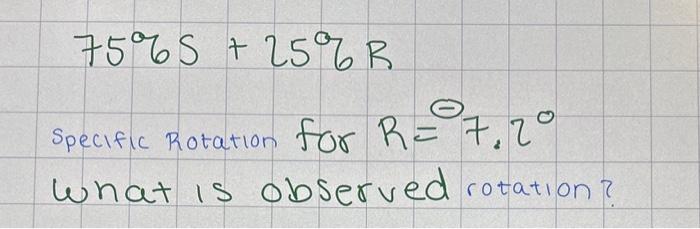 75% S + 25% R
Specific Rotation for R = ⊖7.2°
What is observed rotation?